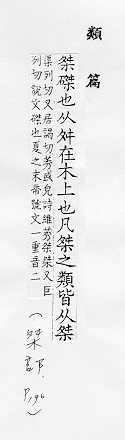 類篇
桀磔也从舛在木上也凡桀之類皆从桀
渠列切又居謁切詩維莠桀桀又巨
列切說文磔也夏之末帝號文一重音二
(桀部. P196)